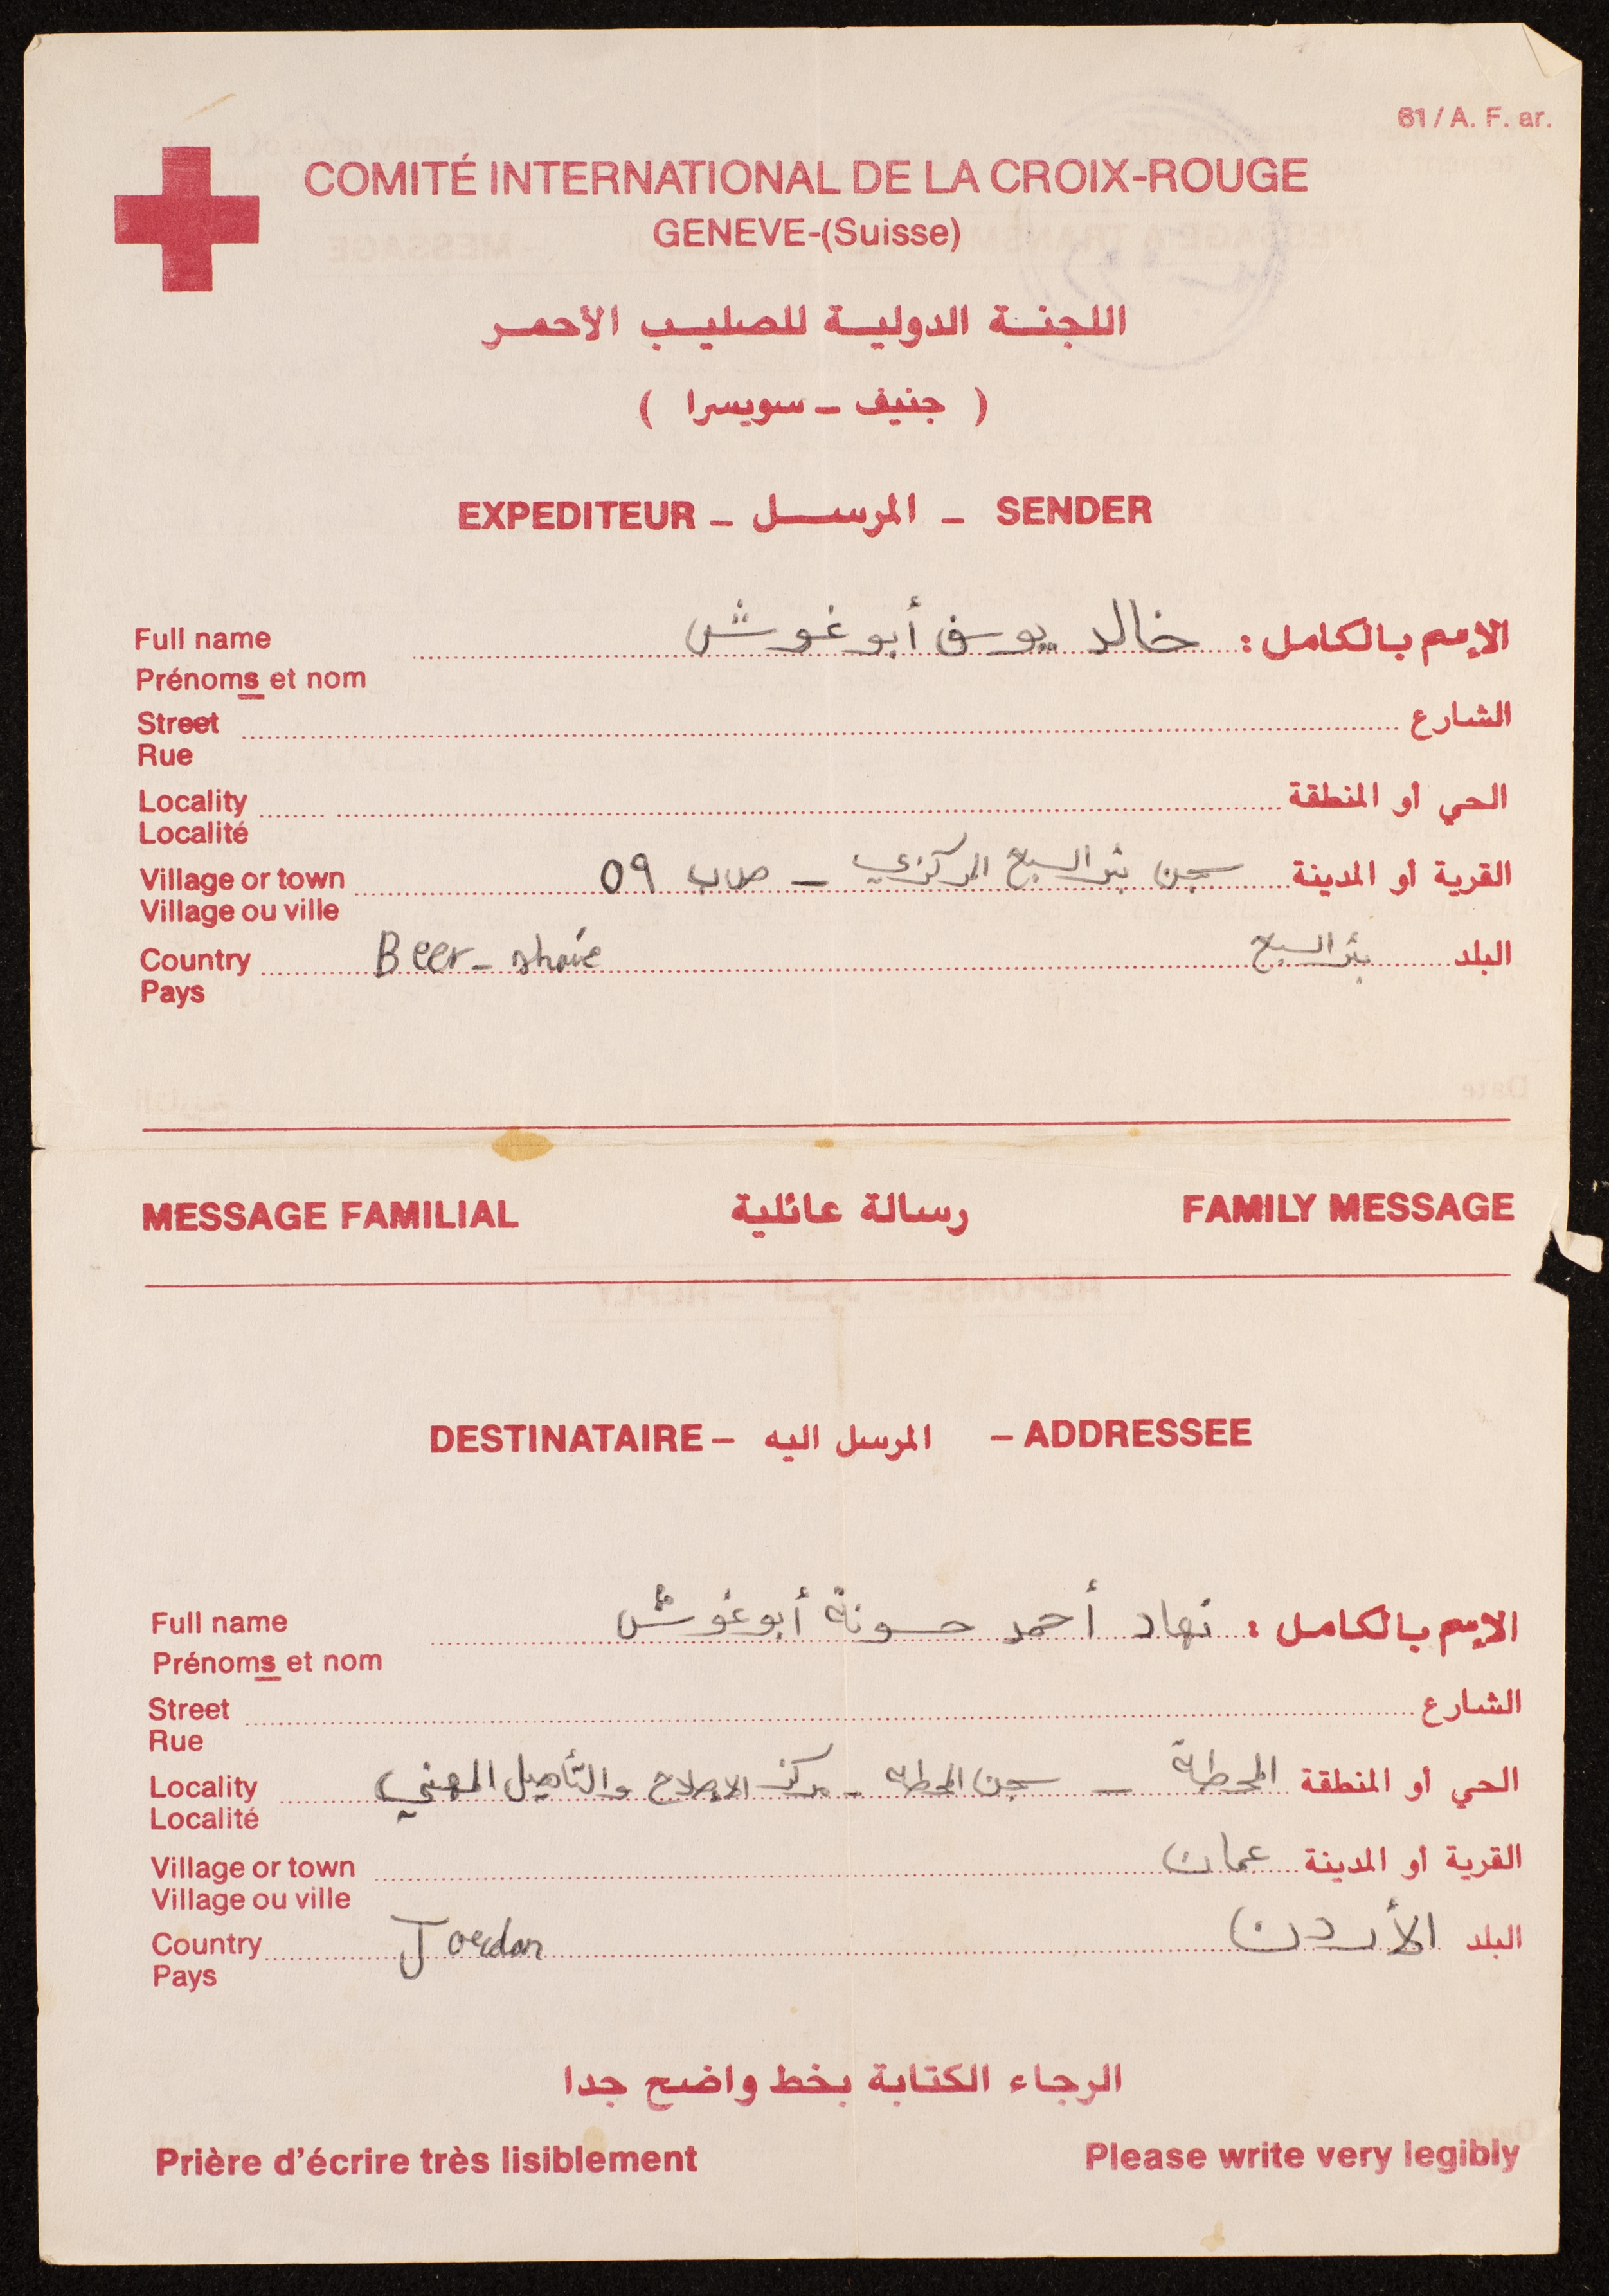 61 / A. F. ar.
COMITÉ INTERNATIONAL DE LA CROIX-ROUGE
GENEVE-(Suisse)
اللجنة الدولية للصليب الأحمر
( جنيف - سويسرا )
EXPEDITEUR - المرسل - SENDER
Full name خالد يوسف أبو غوش الإسم بالكامل :
Prénoms et nom
Street الشارع
Rue
Locality الحي أو المنطقة
Localité
Village or town سجن بئر السبع المركزي - ص.ب 59 القرية أو المدينة
Village ou ville
Country Beer - بئر السبع البلد
Pays
MESSAGE FAMILIAL رسالة عائلية FAMILY MESSAGE
DESTINATAIRE - المرسل اليه - ADDRESSEE
Full name نهاد أحمد حسونة أبو غوش الإسم بالكامل :
Prénoms et nom
Street الشارع
Rue
Locality المحطة - سجن المحطة - مركز الاصلاح والتأهيل المهني الحي أو المنطقة
Localité
Village or town عمان القرية أو المدينة
Village ou ville
Country Jordan الأردن البلد
Pays
الرجاء الكتابة بخط واضح جدا
Prière d'écrire très lisiblement Please write very legibly